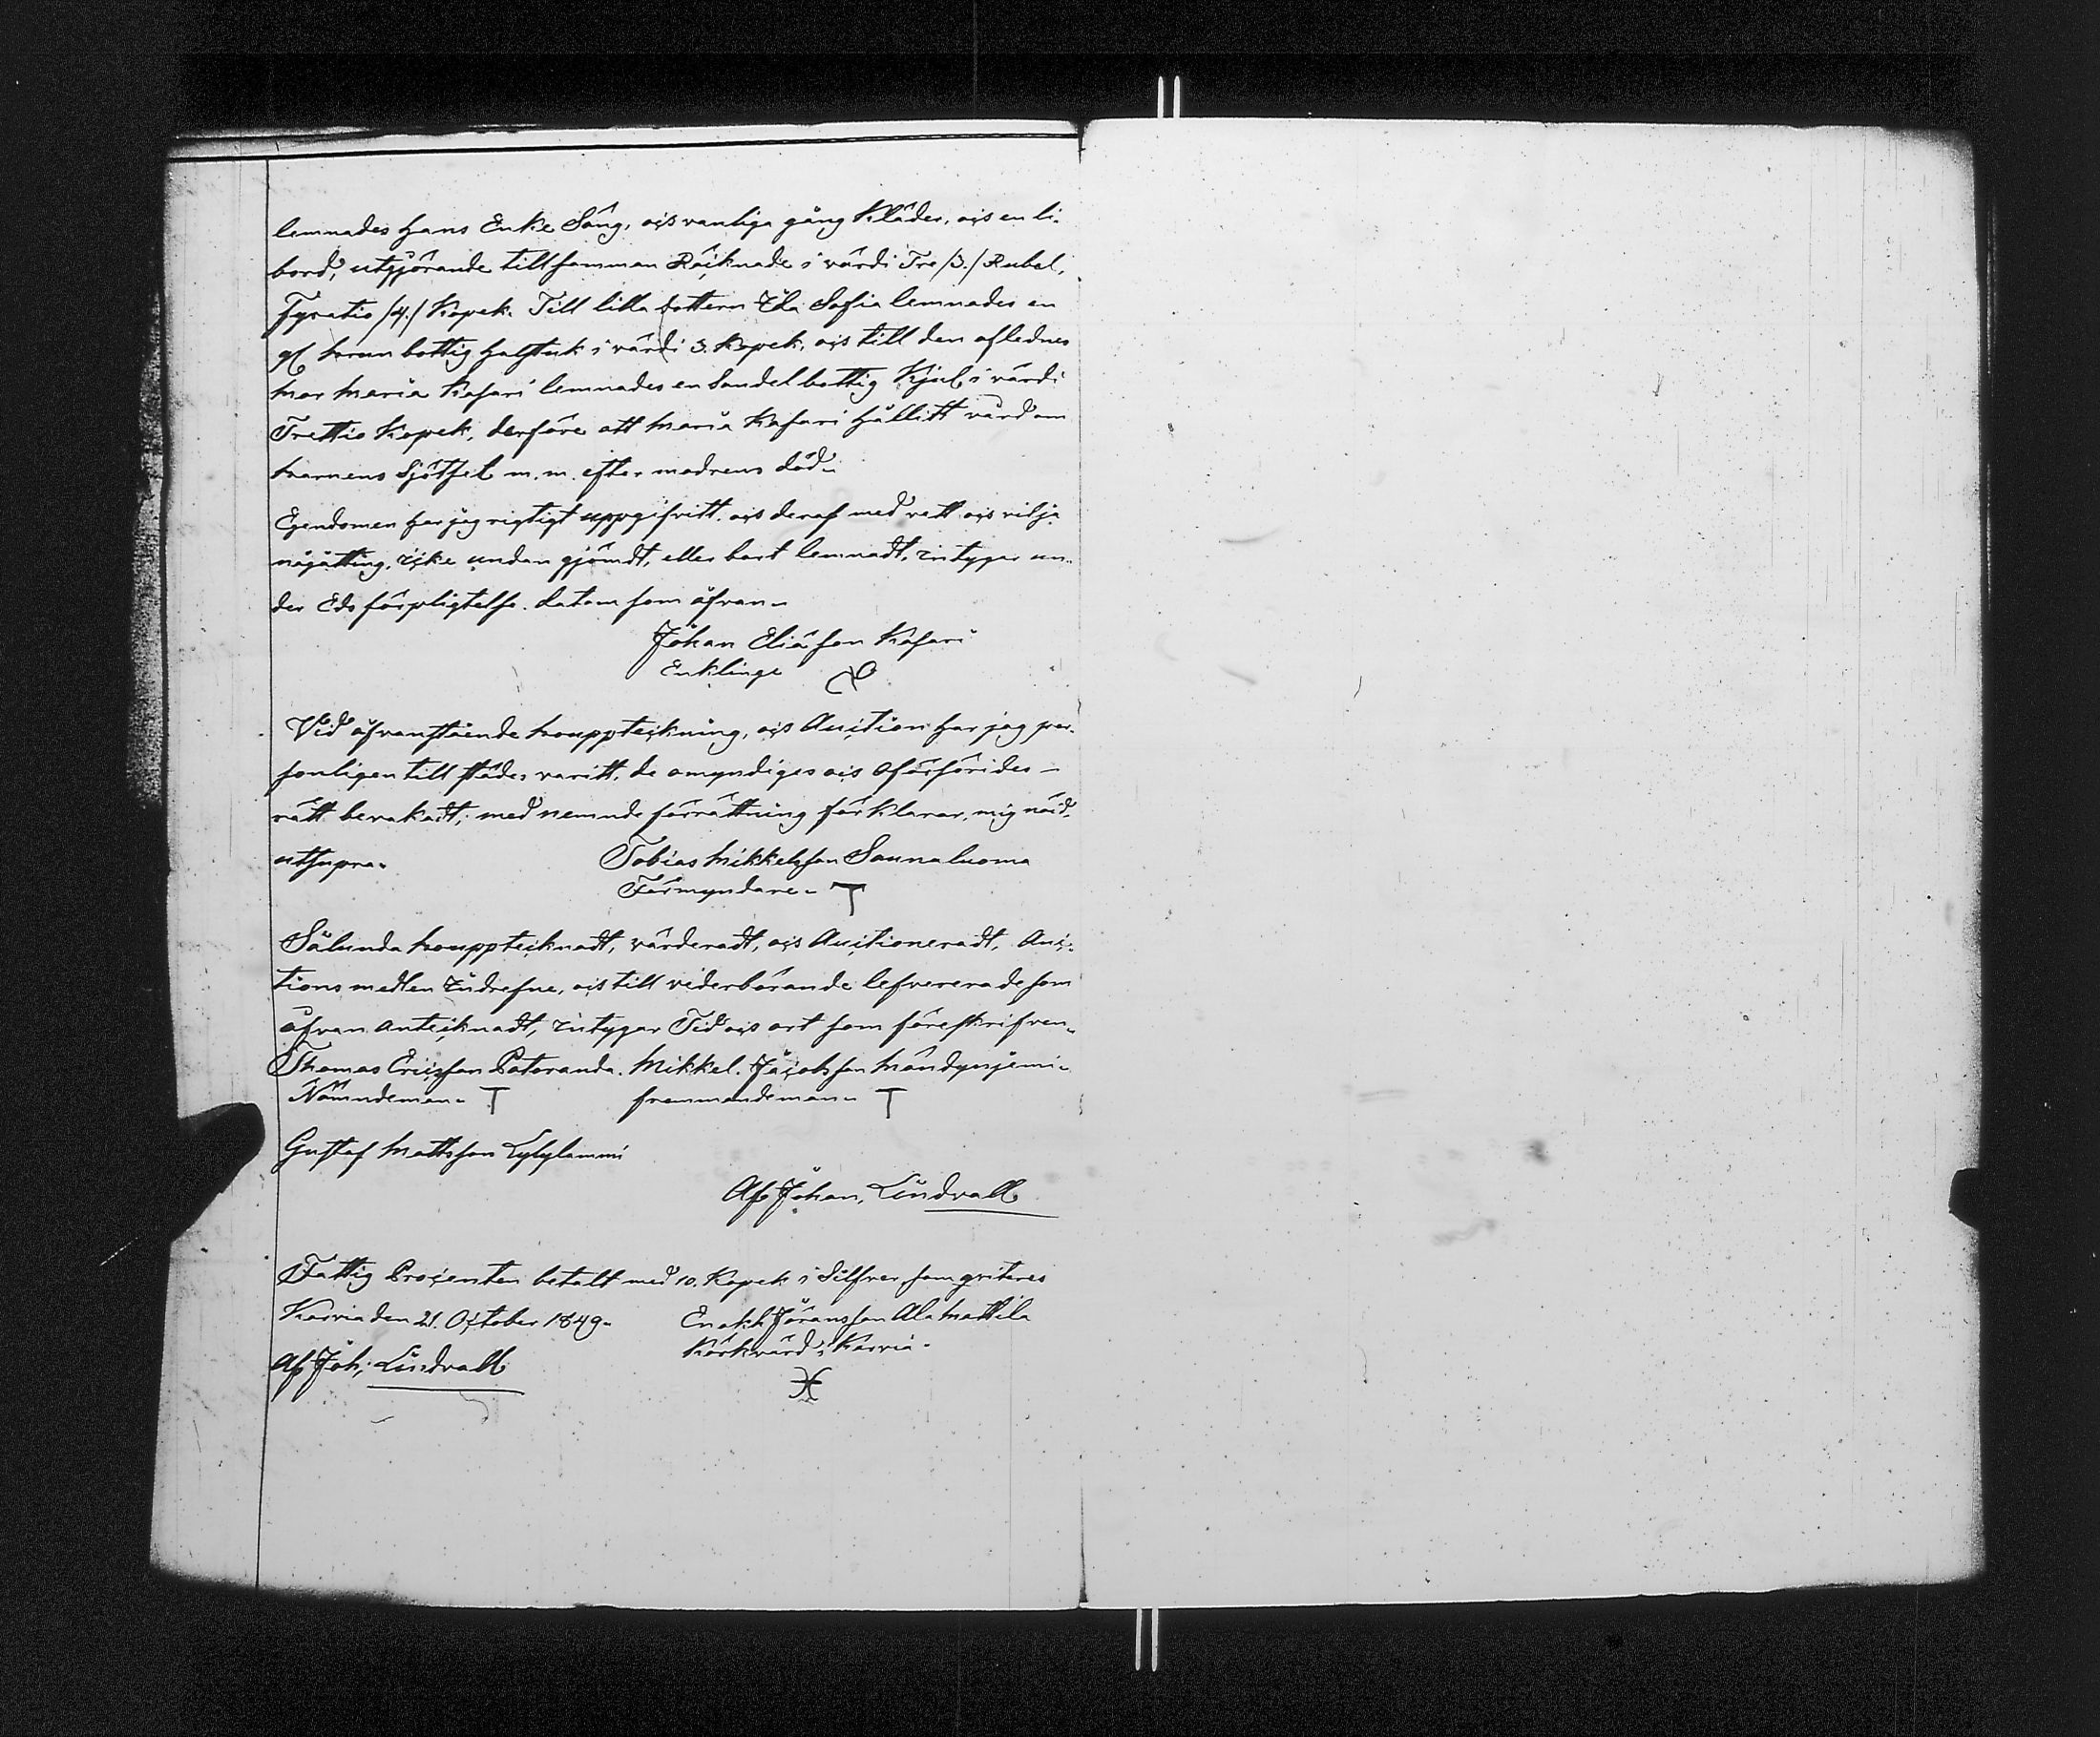 lemnades hans Enke Säng, ocs vanliga gång Kläder, ocs en li-
bord, utgjörande tillsamman Räcknade i värdi Tre /3./ Rubel,
Fyratio /4./ Kopek. Till lilla dottern Ida Sofia lemnades en
gl brun bottig halstuk i värdi 3. Kopek, ocs till den aflednes
mor Maria Kafari lemnades en Sandel bottig Kjol i värdi
Trettio Kopek, derföre att Maria Kafari hållitt vård om
barnens Sjötsel m. m. efter modrens död.
Egendomen har jag rigtigt uppgifvitt, ocs deraf med vett ocs vilja
någåtting, icke undan gjömdt, eller bort lemnadt, intygar un-
der Eds förpligtelse. datom som åfvan.
Johan Eliasson Kafari
Enklinge
Vid åfvanstående bouppteckning, ocs Auction har jag per-
sonligen till städes varitt, de omyndiges ocs oförsörides
rätt bevakadt; med nemnde förrättning förklarar, mig nöid,
utsupra.
Tobias Mikkelsson Saunaluoma
Förmyndare. T
Sålunda bouppteicknadt, värderadt, ocs Auctioneradt, Auc-
tions medlen Indrefne, ocs till vederbörande lefvererade som
åfvan anteicknadt, intygar Tid ocs ort som föreskrifven.
Thomas Ericsson Patoranda. Mikkel. Jacobsson Mändynjemi.
Nämndeman. T fremmandeman. T
Gustaf Mattsson Lylylammi
Af Johan, Lindvall
Fattig Procenten betalt med 10. Kopek i Silfver som qviteres
Karvia den 21. October 1849.
Enokk Jöransson Ala Mattila
Körkvärd i Karvia.
Af Joh; Lindvall